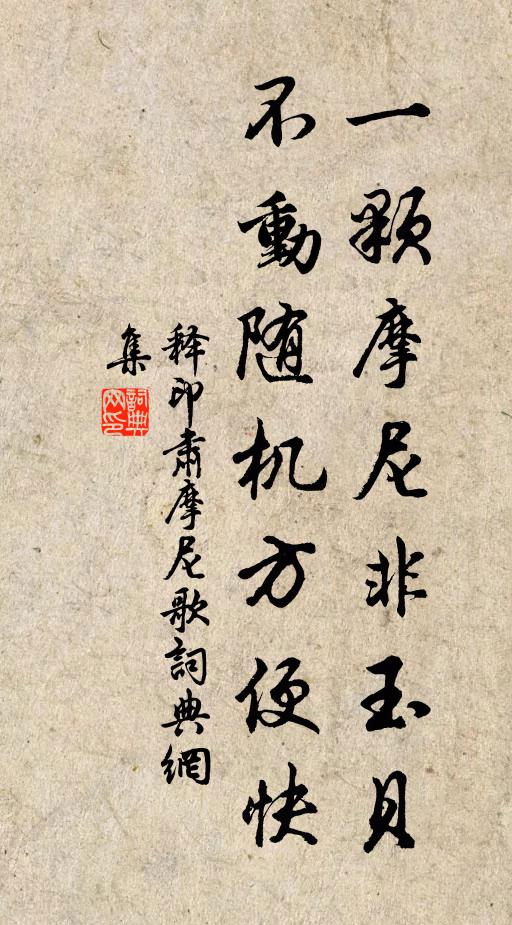 一颗摩尼非玉貝
不動随机方便快
释印肃摩尼歌詞典網
集
詞典
网印